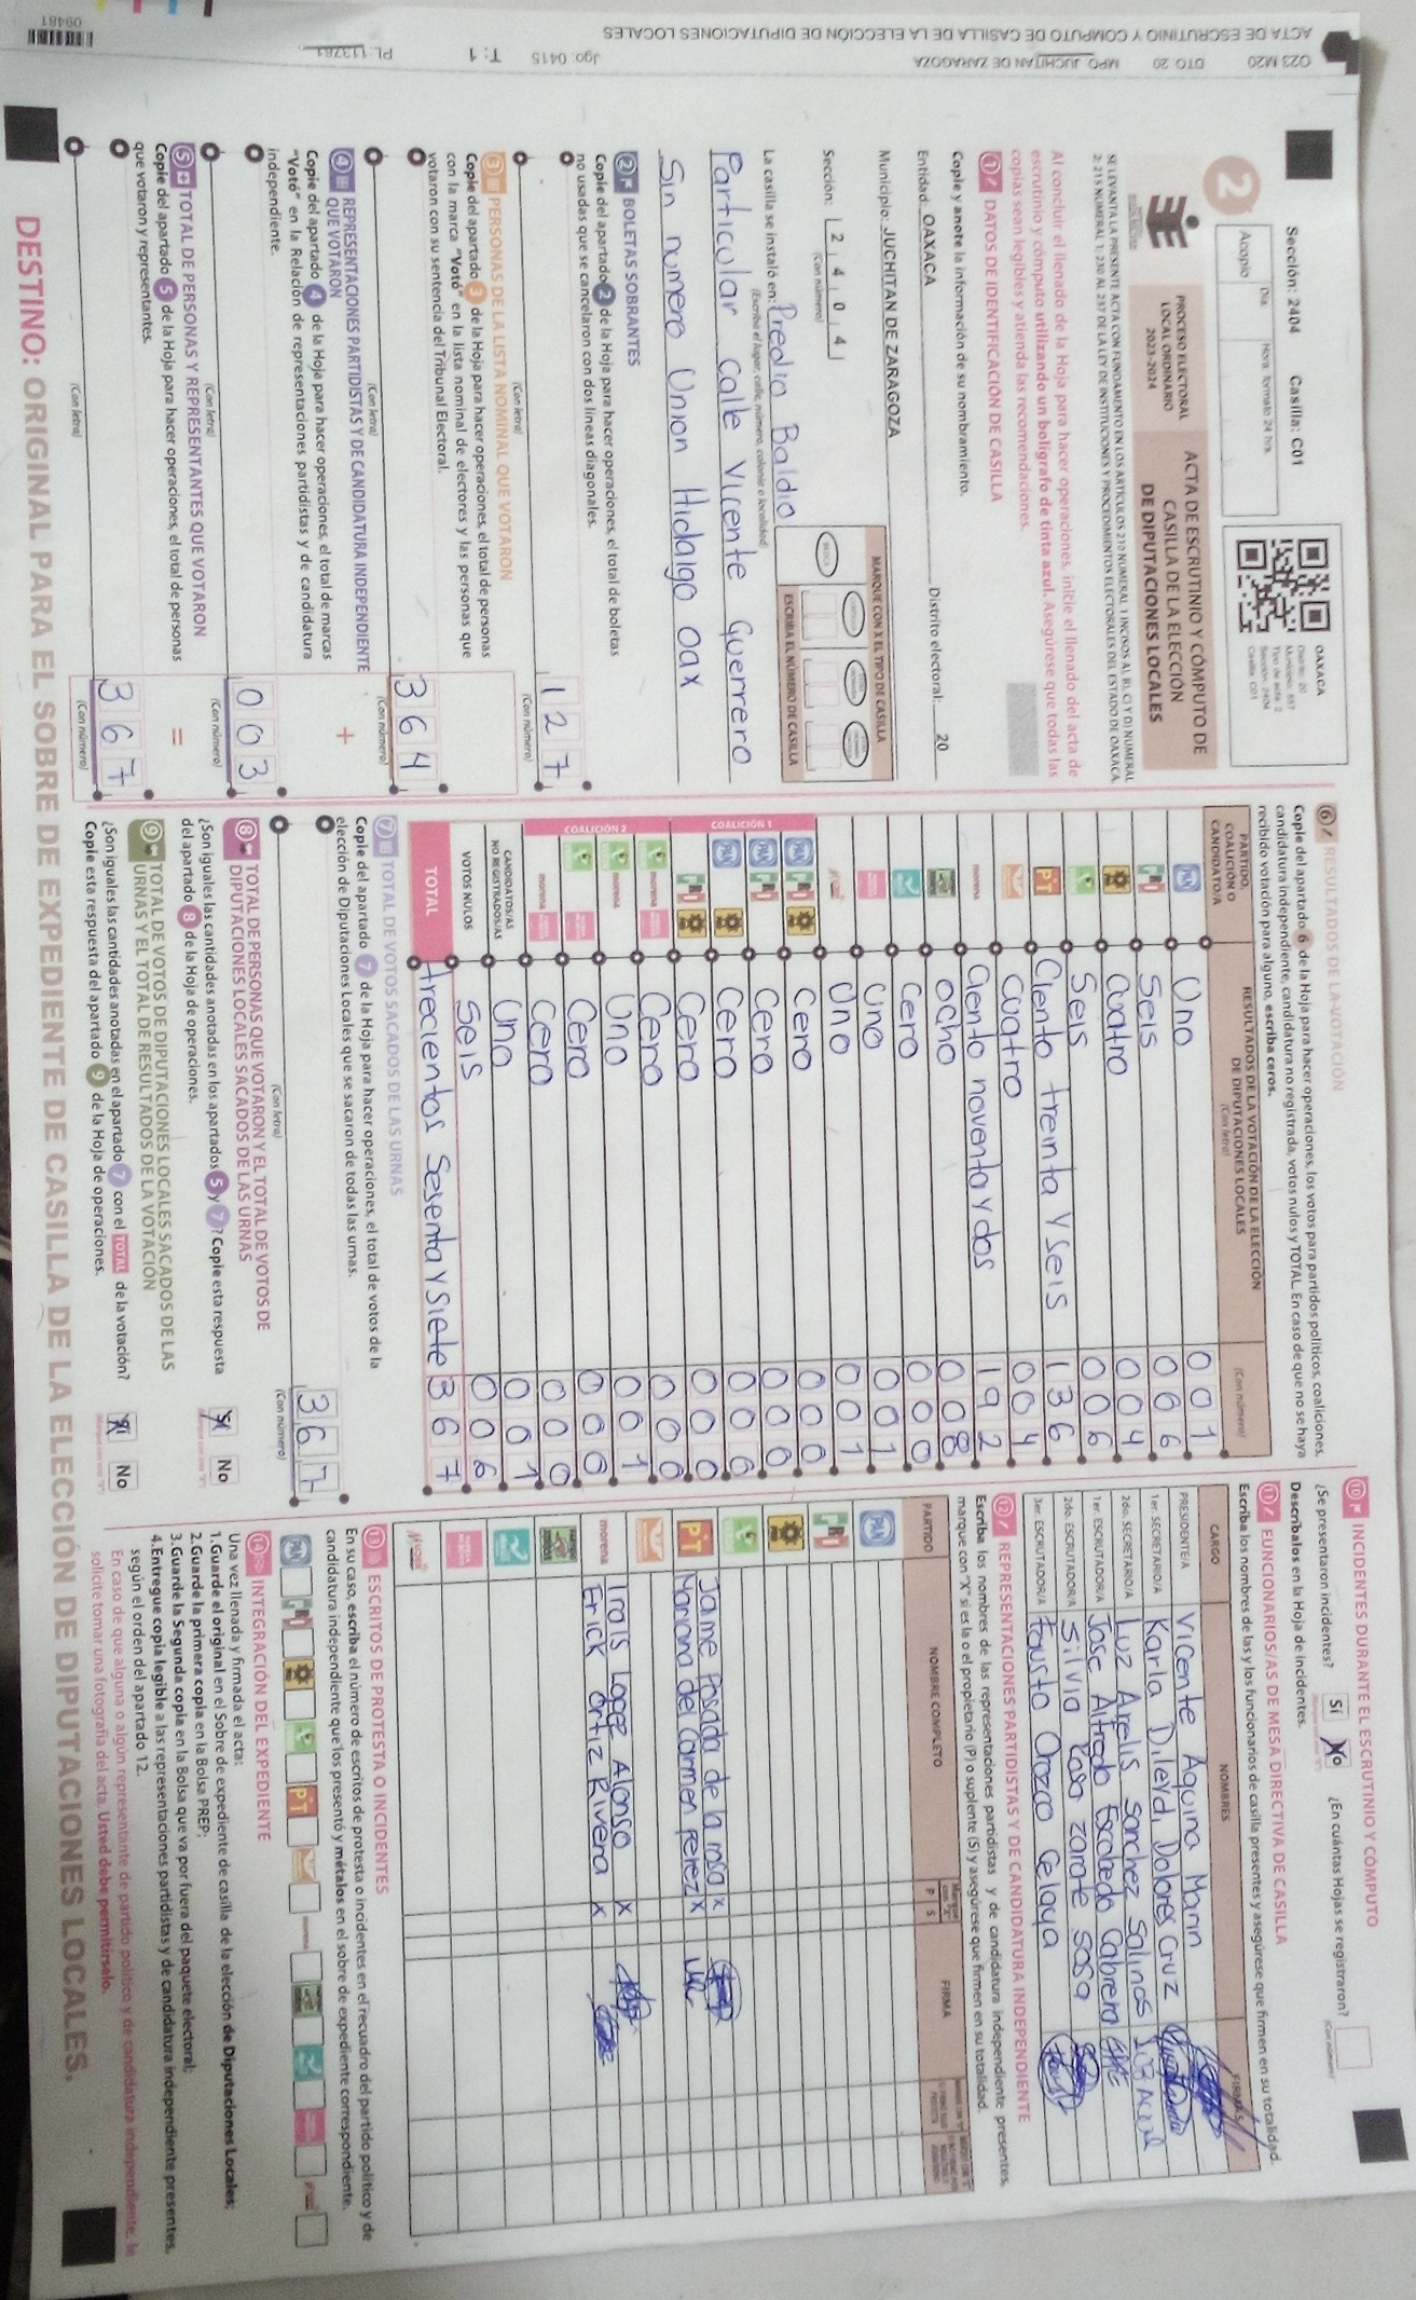 Sección: 2404 Casilla: C01
OAXACA
Distrito: 20
Tipo de acta: 2
Sección: 2404
Casilla: C01
2
Acopio
Día
Hora formato 24 hrs.
PROCESO ELECTORAL
LOCAL ORDINARIO
2023-2024
ACTA DE ESCRUTINIO Y CÓMPUTO DE
CASILLA DE LA ELECCIÓN
DE DIPUTACIONES LOCALES
Al concluir el llenado de la Hoja para hacer operaciones, inicie el llenado del acta de
escrutinio y cómputo utilizando un bolígrafo de tinta azul. Asegúrese que todas las
copias sean legibles y atienda las recomendaciones.
1 DATOS DE IDENTIFICACIÓN DE CASILLA
Copie y anote la información de su nombramiento.
Entidad: OAXACA Distrito electoral: 20
Municipio: JUCHITAN DE ZARAGOZA
Sección: 2 4 0 4
(Con número)
MARQUE CON X EL TIPO DE CASILLA
ESCRIBA EL NÚMERO DE CASILLA
La casilla se instaló en: Predio Baldio
(Escriba el lugar, calle, número, colonia o localidad)
Particular Calle Vicente Guerrero
Sin numero Union Hidalgo Oax
2 BOLETAS SOBRANTES
Copie del apartado 2 de la Hoja para hacer operaciones, el total de boletas
no usadas que se cancelaron con dos líneas diagonales.
127
(Con letra) (Con número)
3 PERSONAS DE LA LISTA NOMINAL QUE VOTARON
Copie del apartado 3 de la Hoja para hacer operaciones, el total de personas
con la marca "Votó" en la lista nominal de electores y las personas que
votaron con su sentencia del Tribunal Electoral.
364
(Con letra) (Con número)
4 REPRESENTACIONES PARTIDISTAS Y DE CANDIDATURA INDEPENDIENTE
QUE VOTARON
+
Copie del apartado 4 de la Hoja para hacer operaciones, el total de marcas
"Votó" en la Relación de representaciones partidistas y de candidatura
independiente.
003
(Con letra) (Con número)
5 TOTAL DE PERSONAS Y REPRESENTANTES QUE VOTARON
=
Copie del apartado 5 de la Hoja para hacer operaciones, el total de personas
que votaron y representantes.
367
(Con letra) (Con número)
6 RESULTADOS DE LA VOTACIÓN
Copie del apartado 6 de la Hoja para hacer operaciones, los votos para partidos políticos, coaliciones,
candidatura independiente, candidatura no registrada, votos nulos y TOTAL. En caso de que no se haya
recibido votación para alguno, escriba ceros.
PARTIDO,
COALICIÓN O
CANDIDATO/A
RESULTADOS DE LA VOTACIÓN DE LA ELECCIÓN
DE DIPUTACIONES LOCALES
(Con letra)
(Con número)
PAN Uno 001
PRI Seis 006
Cuatro 004
Seis 006
PT Ciento treinta y seis 136
Cuatro 004
morena Ciento noventa y dos 192
ocho 008
Cero 000
Uno 001
Uno 001
COALICIÓN 1
PAN PRI Cero 000
PAN PRI Cero 000
PAN Cero 000
PRI Cero 000
COALICIÓN 2
morena Cero 000
morena Uno 001
Cero 000
morena Cero 000
CANDIDATOS/AS
NO REGISTRADOS/AS Uno 001
VOTOS NULOS Seis 006
TOTAL trecientos Sesenta y siete 367
7 TOTAL DE VOTOS SACADOS DE LAS URNAS
Copie del apartado 7 de la Hoja para hacer operaciones, el total de votos de la
elección de Diputaciones Locales que se sacaron de todas las urnas.
367
(Con letra) (Con número)
8 TOTAL DE PERSONAS QUE VOTARON Y EL TOTAL DE VOTOS DE
DIPUTACIONES LOCALES SACADOS DE LAS URNAS
¿Son iguales las cantidades anotadas en los apartados 5 y 7? Copie esta respuesta
del apartado 8 de la Hoja de operaciones.
Sí No
9 TOTAL DE VOTOS DE DIPUTACIONES LOCALES SACADOS DE LAS
URNAS Y EL TOTAL DE RESULTADOS DE LA VOTACIÓN
¿Son iguales las cantidades anotadas en el apartado 7 con el TOTAL de la votación?
Copie esta respuesta del apartado 9 de la Hoja de operaciones.
Sí No
10 INCIDENTES DURANTE EL ESCRUTINIO Y CÓMPUTO
¿Se presentaron incidentes? Sí No ¿En cuántas Hojas se registraron?
(Con número)
Descríbalos en la Hoja de incidentes.
11 FUNCIONARIOS/AS DE MESA DIRECTIVA DE CASILLA
Escriba los nombres de las y los funcionarios de casilla presentes y asegúrese que firmen en su totalidad.
CARGO NOMBRES FIRMAS
PRESIDENTE/A Vicente Aquino Marin
1er. SECRETARIO/A Karla Dileydi Dolores Cruz
2do. SECRETARIO/A Luz Arelis Sanchez Salinas
1er. ESCRUTADOR/A Jose Alfredo Escobedo Cabrera
2do. ESCRUTADOR/A Silvia Rosa zarate sosa
3er. ESCRUTADOR/A Fausto Orozco Celaya
12 REPRESENTACIONES PARTIDISTAS Y DE CANDIDATURA INDEPENDIENTE
Escriba los nombres de las representaciones partidistas y de candidatura independiente presentes,
marque con "X" si es la o el propietario (P) o suplente (S) y asegúrese que firmen en su totalidad.
PARTIDO NOMBRE COMPLETO P S FIRMA
PAN
PRI
Jaime Posada de la rosa x
PT Mariana del Carmen perez x
Irais Lopez Alonso x
morena Erick Ortiz Rivera x
13 ESCRITOS DE PROTESTA O INCIDENTES
En su caso, escriba el número de escritos de protesta o incidentes en el recuadro del partido político y de
candidatura independiente que los presentó y métalos en el sobre de expediente correspondiente.
PAN PRI PT morena
14 INTEGRACIÓN DEL EXPEDIENTE
Una vez llenada y firmada el acta:
1.Guarde el original en el Sobre de expediente de casilla de la elección de Diputaciones Locales;
2.Guarde la primera copia en la Bolsa PREP;
3.Guarde la Segunda copia en la Bolsa que va por fuera del paquete electoral;
4.Entregue copia legible a las representaciones partidistas y de candidatura independiente presentes,
según el orden del apartado 12.
En caso de que alguna o algún representante de partido político y de candidatura independiente, le
solicite tomar una fotografía del acta, Usted debe permitírselo.
DESTINO: ORIGINAL PARA EL SOBRE DE EXPEDIENTE DE CASILLA DE LA ELECCIÓN DE DIPUTACIONES LOCALES.
ACTA DE ESCRUTINIO Y COMPUTO DE CASILLA DE LA ELECCIÓN DE DIPUTACIONES LOCALES
023 M20 DTO: 20 MPO: JUCHITAN DE ZARAGOZA Jgo: 0415 T: 1 PL: 113761
09481